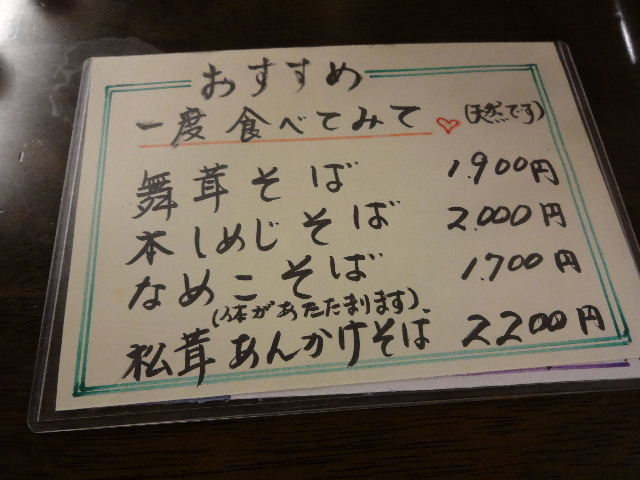 おすすめ
一度食べてみて♡(天然です)
舞茸そば 1.900円
本しめじそば 2.000円
なめこそば 1.700円
(体があたたまります)
松茸あんかけそば 2200円